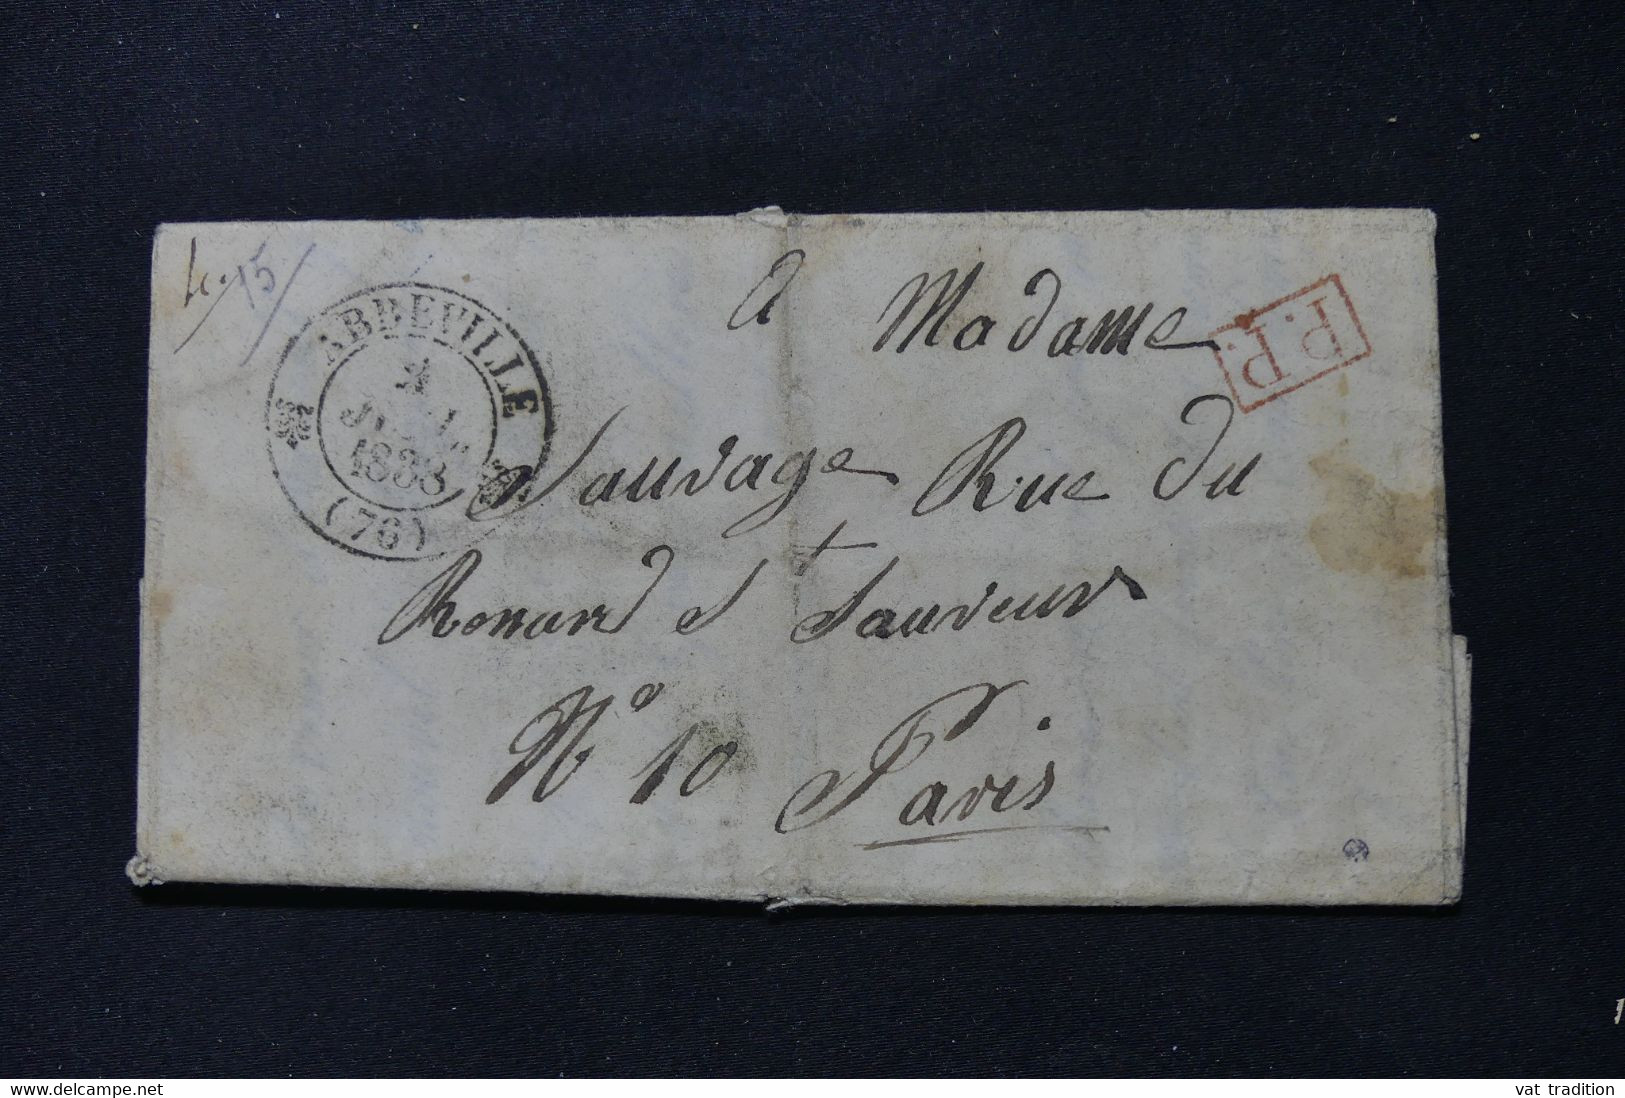 15
ABBEVILLE
1838
(76)
P.P.
A Madame
Sauvage Rue du
Renard St Sauveur
No 10 Paris
www.delcampe.net
vat tradition